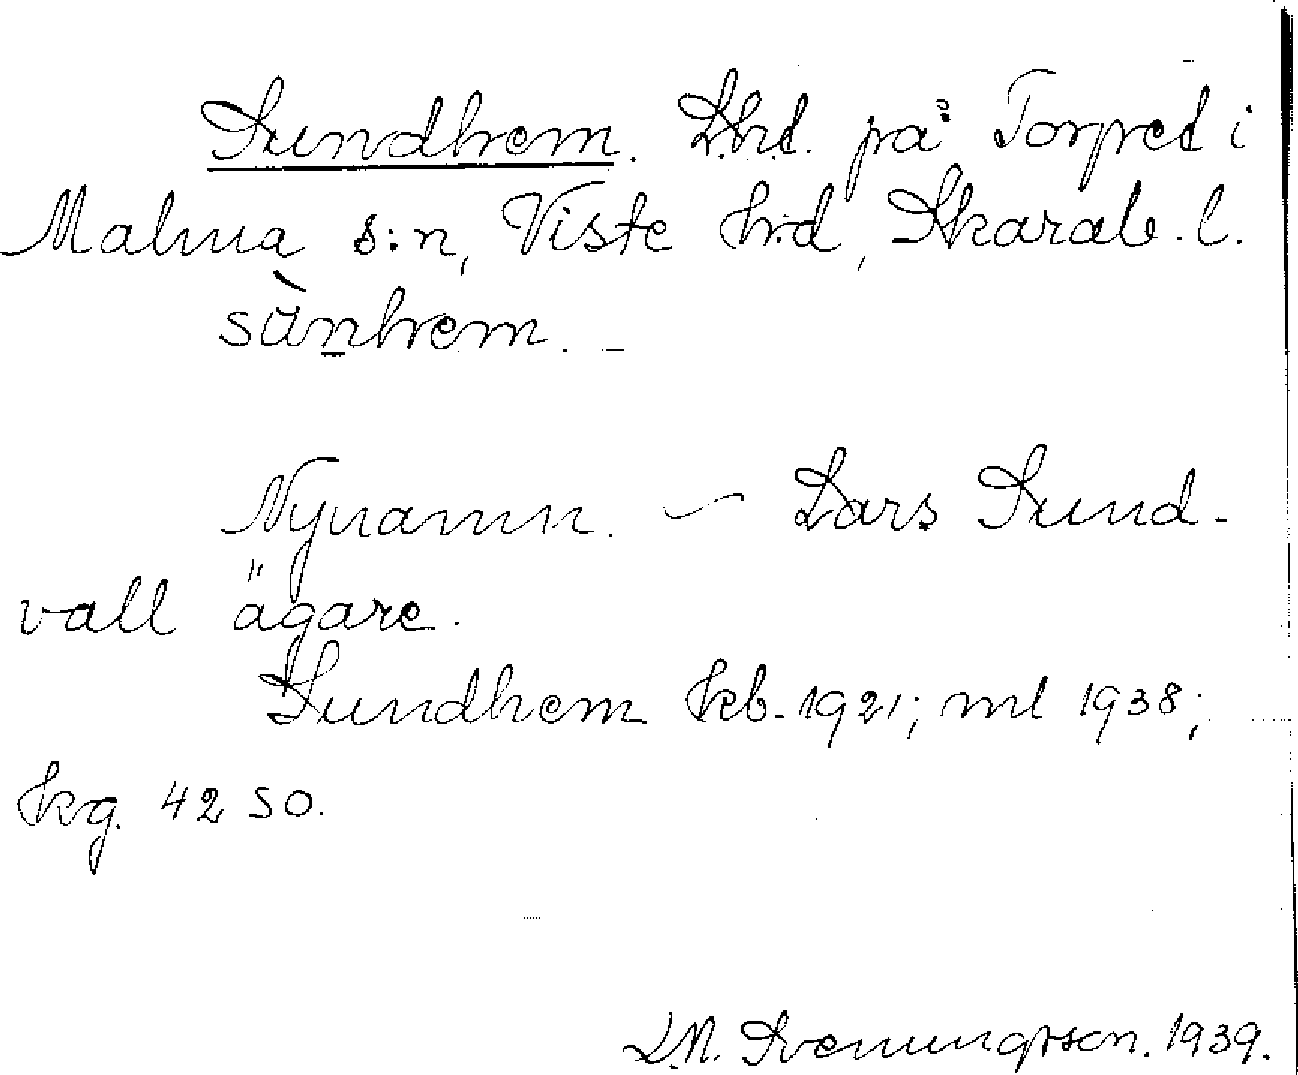 Sundhem. Lht. på Torpet i
Malma s:n, Viste h:d, Skarab. l.
sùnhem. –
Nynamn. – Lars Sund-
vall ägare.
Sundhem kb. 1921; ml 1938;
kg. 42 SO.
L.M. Svenungsson. 1939.